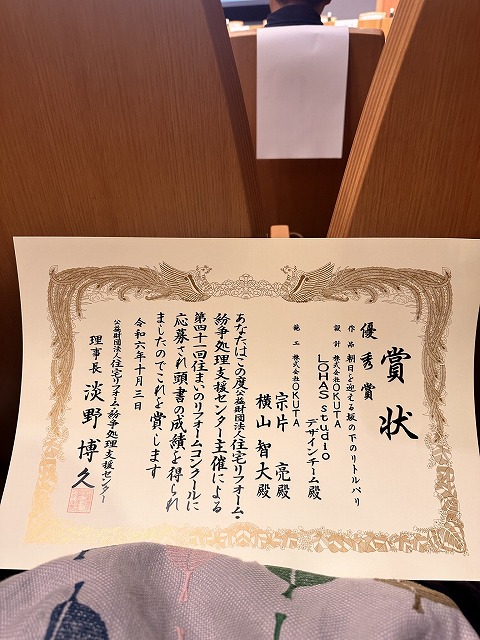 賞状
優秀賞
作品 朝日を迎える坂の下のリトルパリ
設計 株式会社OKUTA
LOHAS studio
デザインチーム殿
施工 株式会社OKUTA
宗片 亮殿
横山 智大殿
あなたはこの度公益財団法人住宅リフォーム・
紛争処理支援センター主催による
第四十一回住まいのリフォームコンクールに
応募され頭書の成績を得られ
ましたのでこれを賞します
令和六年十月三日
公益財団法人住宅リフォーム・紛争処理支援センター
理事長 淡野博久